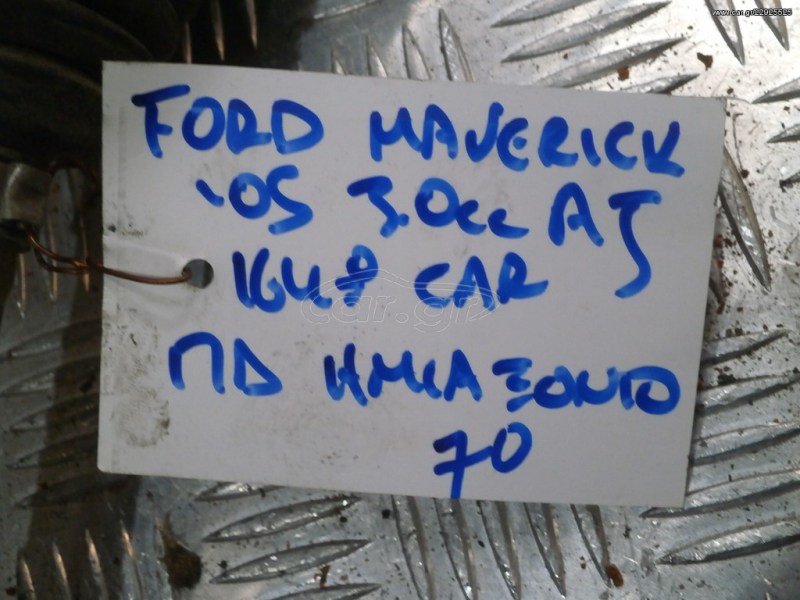 www.car.gr/22925625
FORD MAVERICK
'05 3.0cc AJ
1648 CAR
car.gr
ΠΔ ΗΜΙΑΞΟΝΙΟ
70